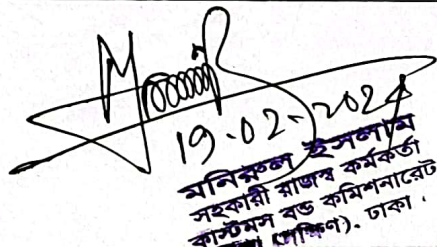 19-02-2024
মনিরুল ইসলাম
সহকারী রাজস্ব কর্মকর্তা
কাস্টমস বন্ড কমিশনারেট
(দক্ষিণ). ঢাকা।